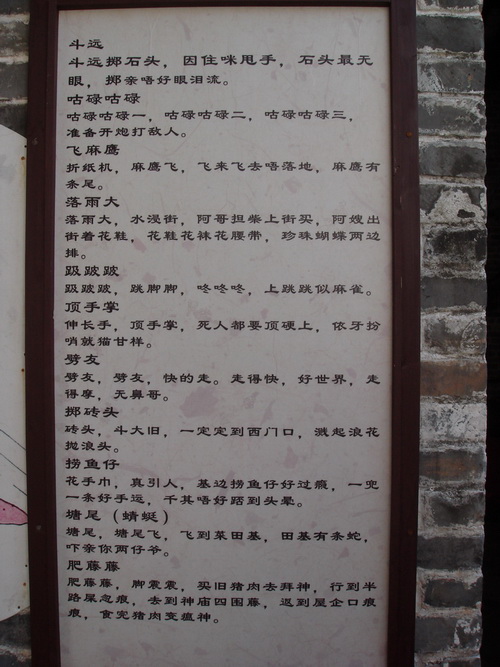 斗远
斗远掷石头，因住咪甩手，石头最无
眼，掷亲唔好眼泪流。
咕碌咕碌
咕碌咕碌一，咕碌咕碌二，咕碌咕碌三，
准备开炮打敌人。
飞麻鹰
折纸机，麻鹰飞，飞来飞去唔落地，麻鹰有
条尾。
落雨大
落雨大，水浸街，阿哥担柴上街买，阿嫂出
街着花鞋，花鞋花袜花腰带，珍珠蝴蝶两边
排。
趿跛跛
趿跛跛，跳脚脚，咚咚咚，上跳跳似麻雀。
顶手掌
伸长手，顶手掌，死人都要顶硬上，依牙扮
哨就猫甘样。
劈友
劈友，劈友，快的走。走得快，好世界，走
得摩，无鼻哥。
掷砖头
砖头，斗大旧，一定定到西门口，溅起浪花
抛浪头。
捞鱼仔
花手巾，真引人，基边捞鱼仔好过瘾，一兜
一条好手运，千其唔好踎到头晕。
塘尾（蜻蜓）
塘尾，塘尾飞，飞到菜田基，田基有条蛇，
吓亲你两仔爷。
肥藤藤
肥藤藤，脚震震，买旧猪肉去拜神，行到半
路屎忽痕，去到神庙四围藤，返到屋企口痕
痕，食完猪肉变瘟神。